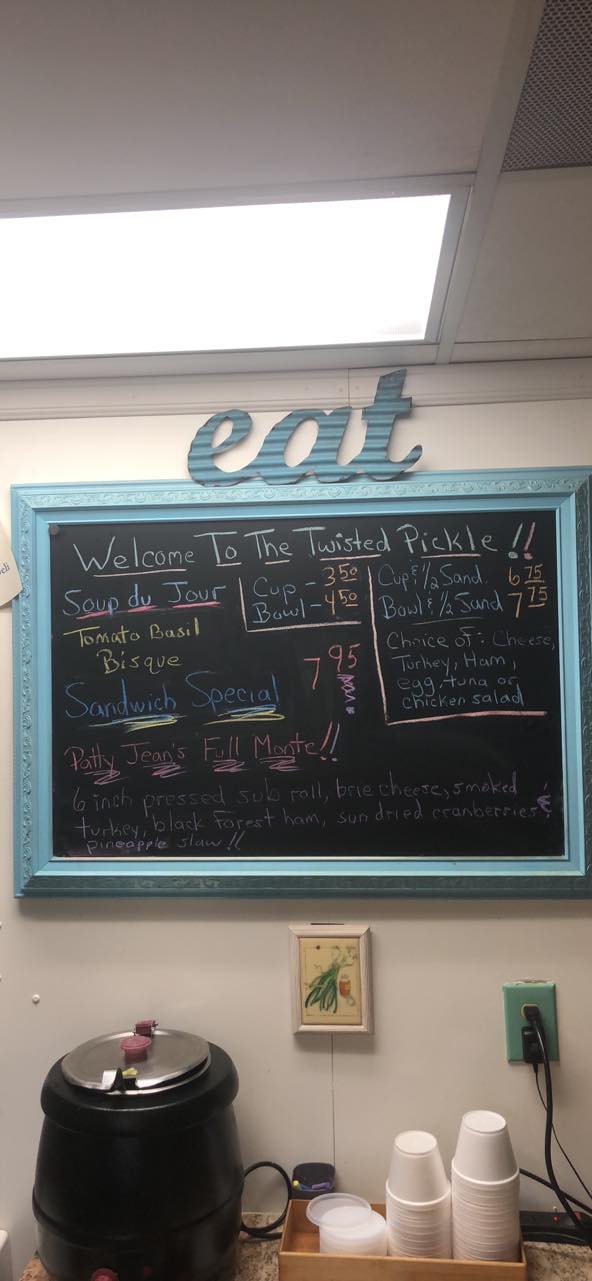 eat
eli
Welcome To The Twisted Pickle !!
Soup du Jour
Tomato Basil
Bisque
Cup - 3 50
Bowl - 4 50
Cup & 1/2 Sand. 6 75
Bowl & 1/2 Sand 7 75
Choice of: Cheese,
Turkey, Ham,
egg, tuna or
chicken salad
Sandwich Special
7 95
Patty Jean's Full Monte!!
6 inch pressed sub roll, brie cheese, smoked
turkey, black forest ham, sun dried cranberries &
pineapple slaw!!